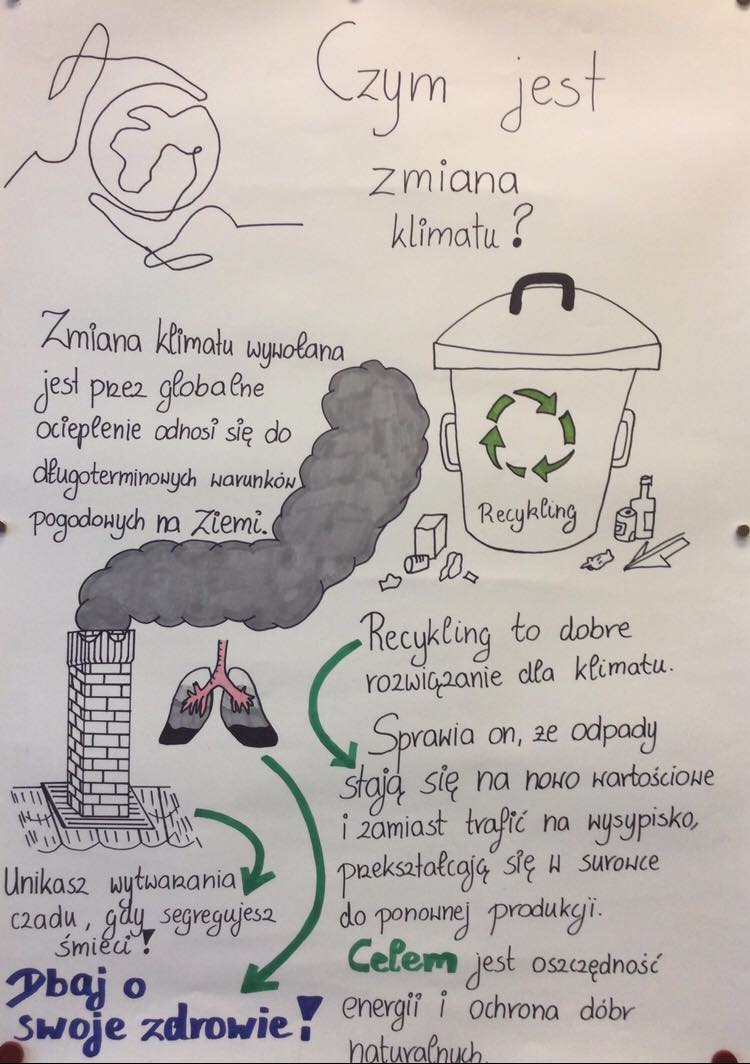 Czym jest
zmiana
klimatu?
Zmiana klimatu wywołana
jest przez globalne
ocieplenie odnosi się do
długoterminowych warunków
pogodowych na Ziemi.
Recykling
Recykling to dobre
rozwiązanie dla klimatu.
Sprawia on, że odpady
stają się na nowo wartościowe
i zamiast trafić na wysypisko,
przekształcają się w surowce
do ponownej produkcji.
Celem jest oszczędność
energii i ochrona dóbr
naturalnych.
Unikasz wytwarzania
czadu, gdy segregujesz
śmieci!
Dbaj o
swoje zdrowie!